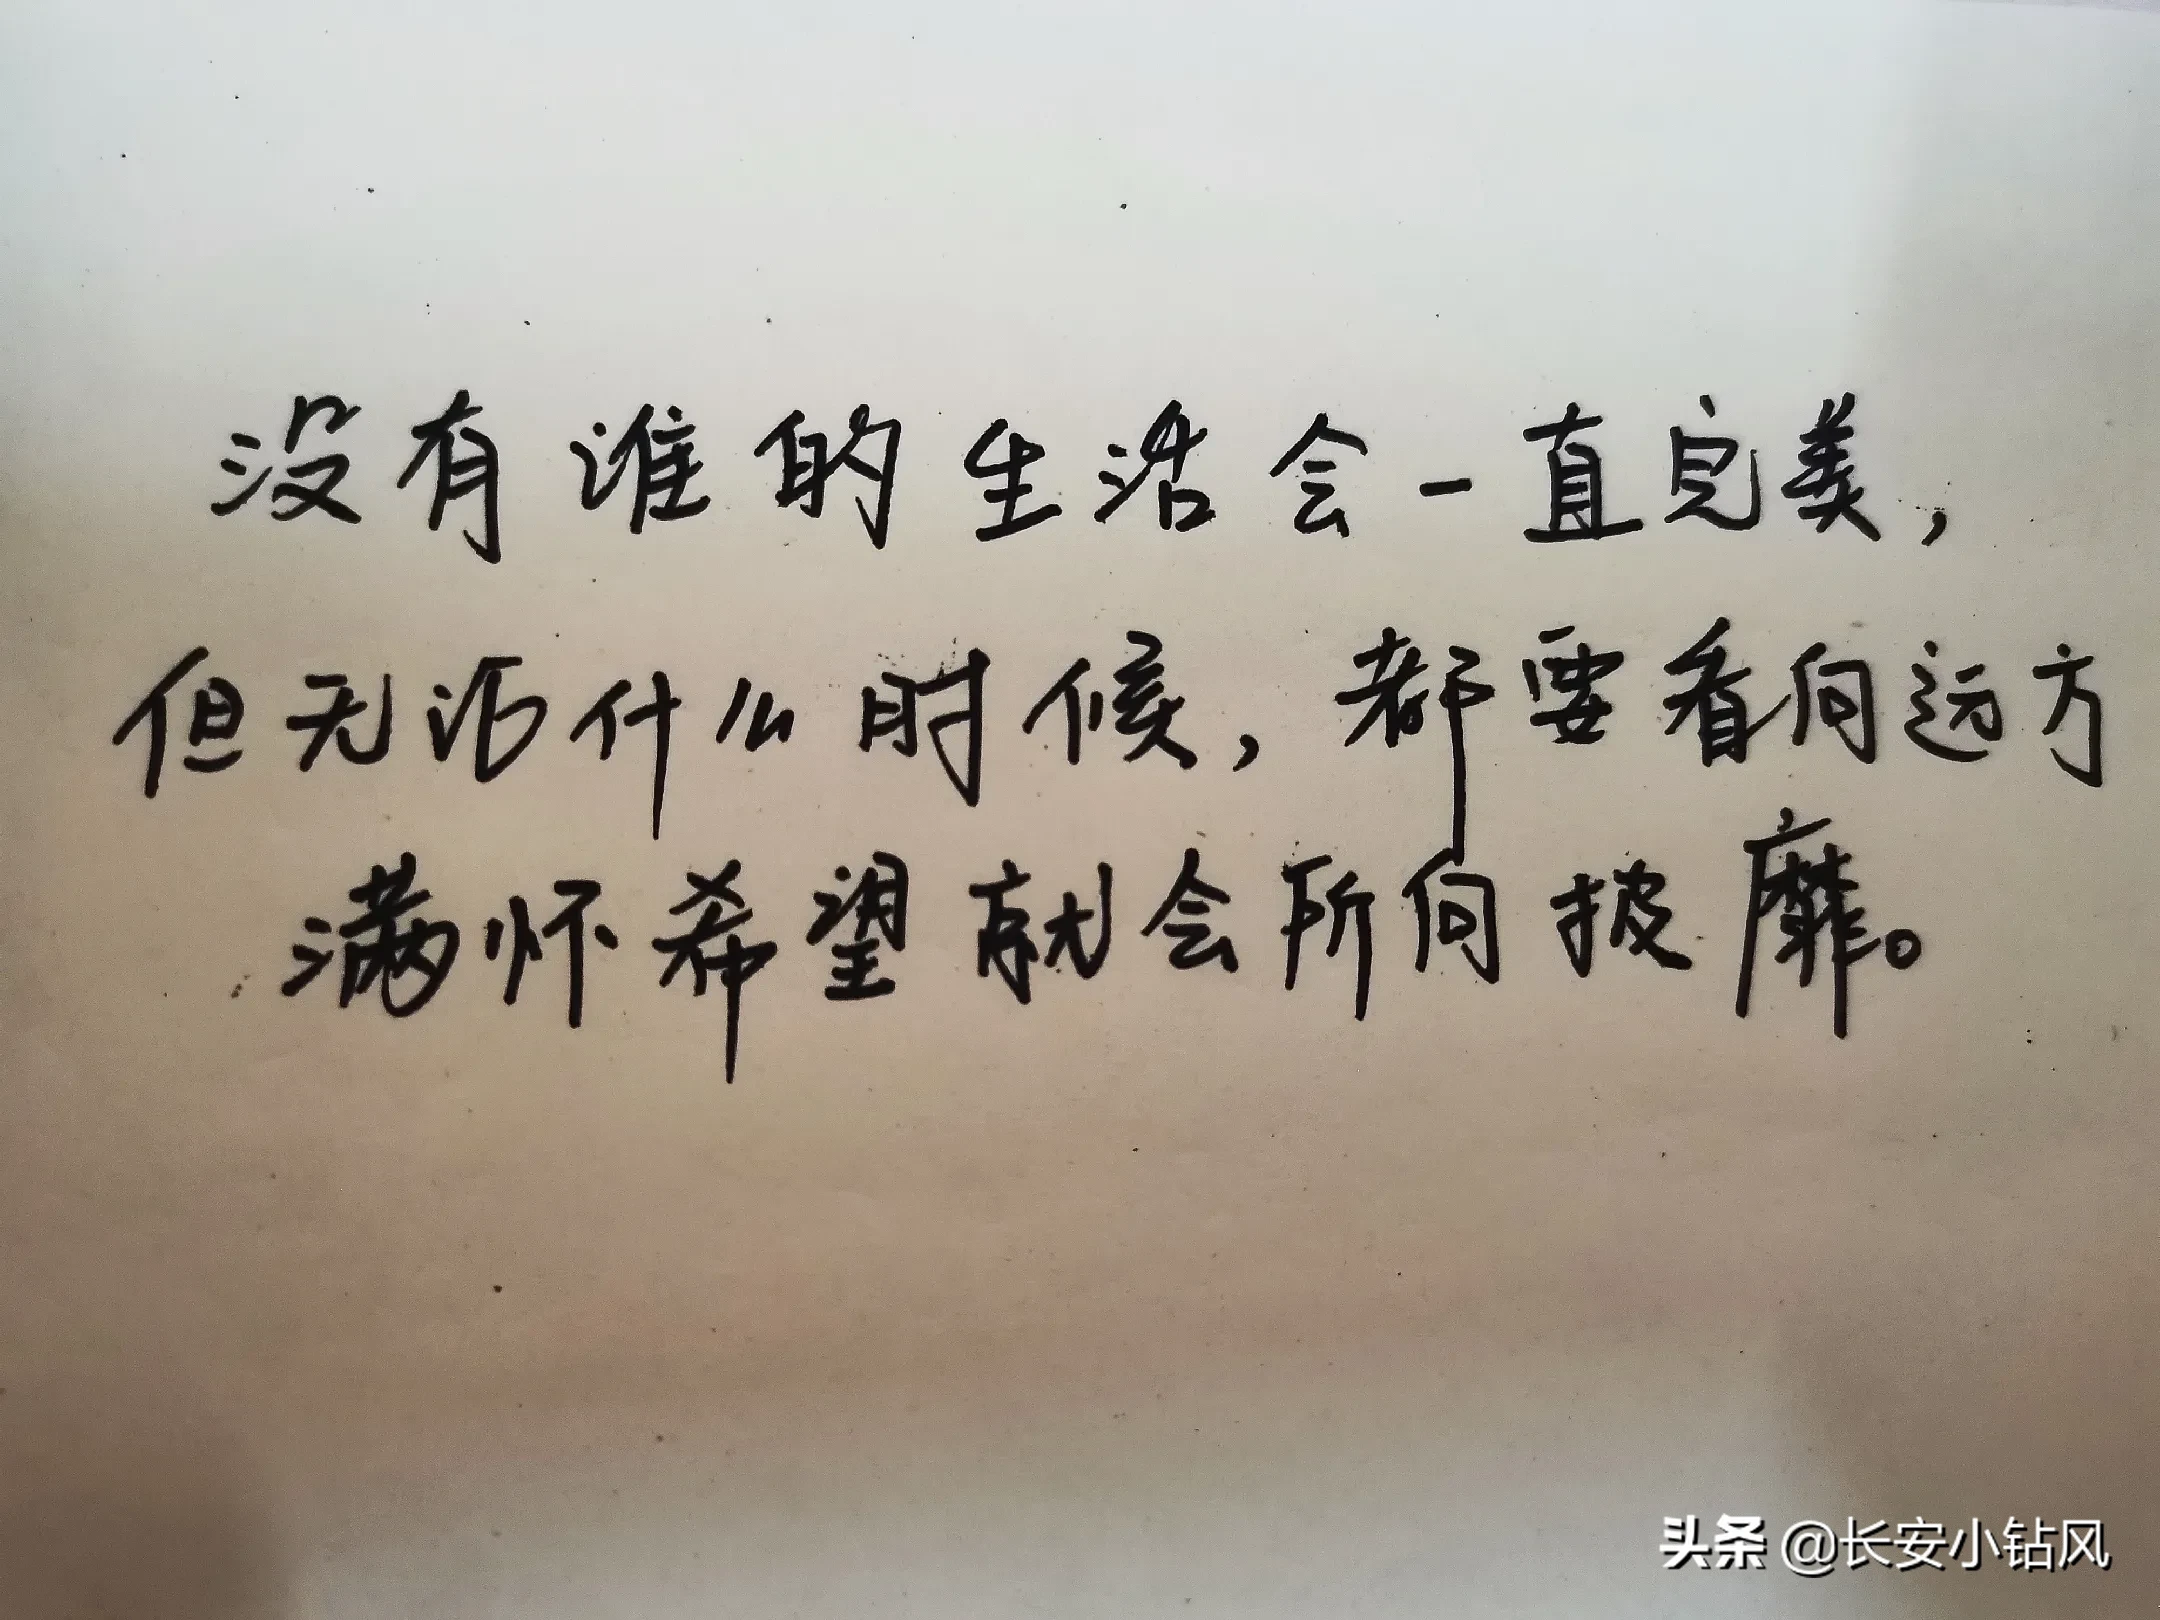 没有谁的生活会一直完美，
但无论什么时候，都要看向远方
满怀希望就会所向披靡。
头条 @长安小钻风